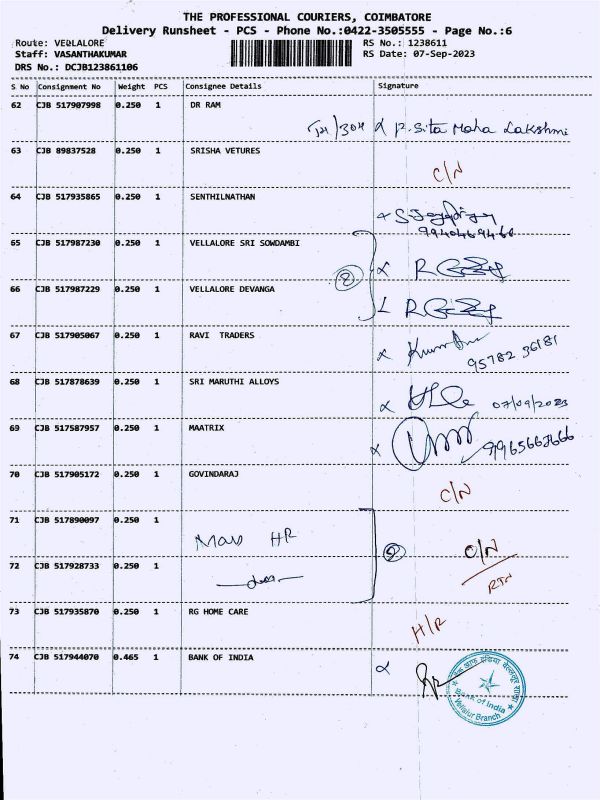 THE PROFESSIONAL COURIERS, COIMBATORE
Delivery Runsheet - PCS - Phone No.:0422-3505555 - Page No.:6
Route: VELLALORE RS No.: 1238611
Staff: VASANTHAKUMAR RS Date: 07-Sep-2023
DRS No.: DCJB123861106
S No Consignment No Weight PCS Consignee Details Signature
62 CJB 517907998 0.250 1 DR RAM
P. Sita Maha Lakshmi
63 CJB 89837528 0.250 1 SRISHA VETURES
C/N
64 CJB 517935865 0.250 1 SENTHILNATHAN
65 CJB 517987230 0.250 1 VELLALORE SRI SOWDAMBI
2
66 CJB 517987229 0.250 1 VELLALORE DEVANGA
67 CJB 517905067 0.250 1 RAVI TRADERS
95782 36181
68 CJB 517878639 0.250 1 SRI MARUTHI ALLOYS
07/09/2023
69 CJB 517587957 0.250 1 MAATRIX
70 CJB 517905172 0.250 1 GOVINDARAJ
C/N
71 CJB 517890097 0.250 1
HR
2
72 CJB 517928733 0.250 1
73 CJB 517935870 0.250 1 RG HOME CARE
H/R
74 CJB 517944070 0.465 1 BANK OF INDIA
Bank of India
Vellalur Branch